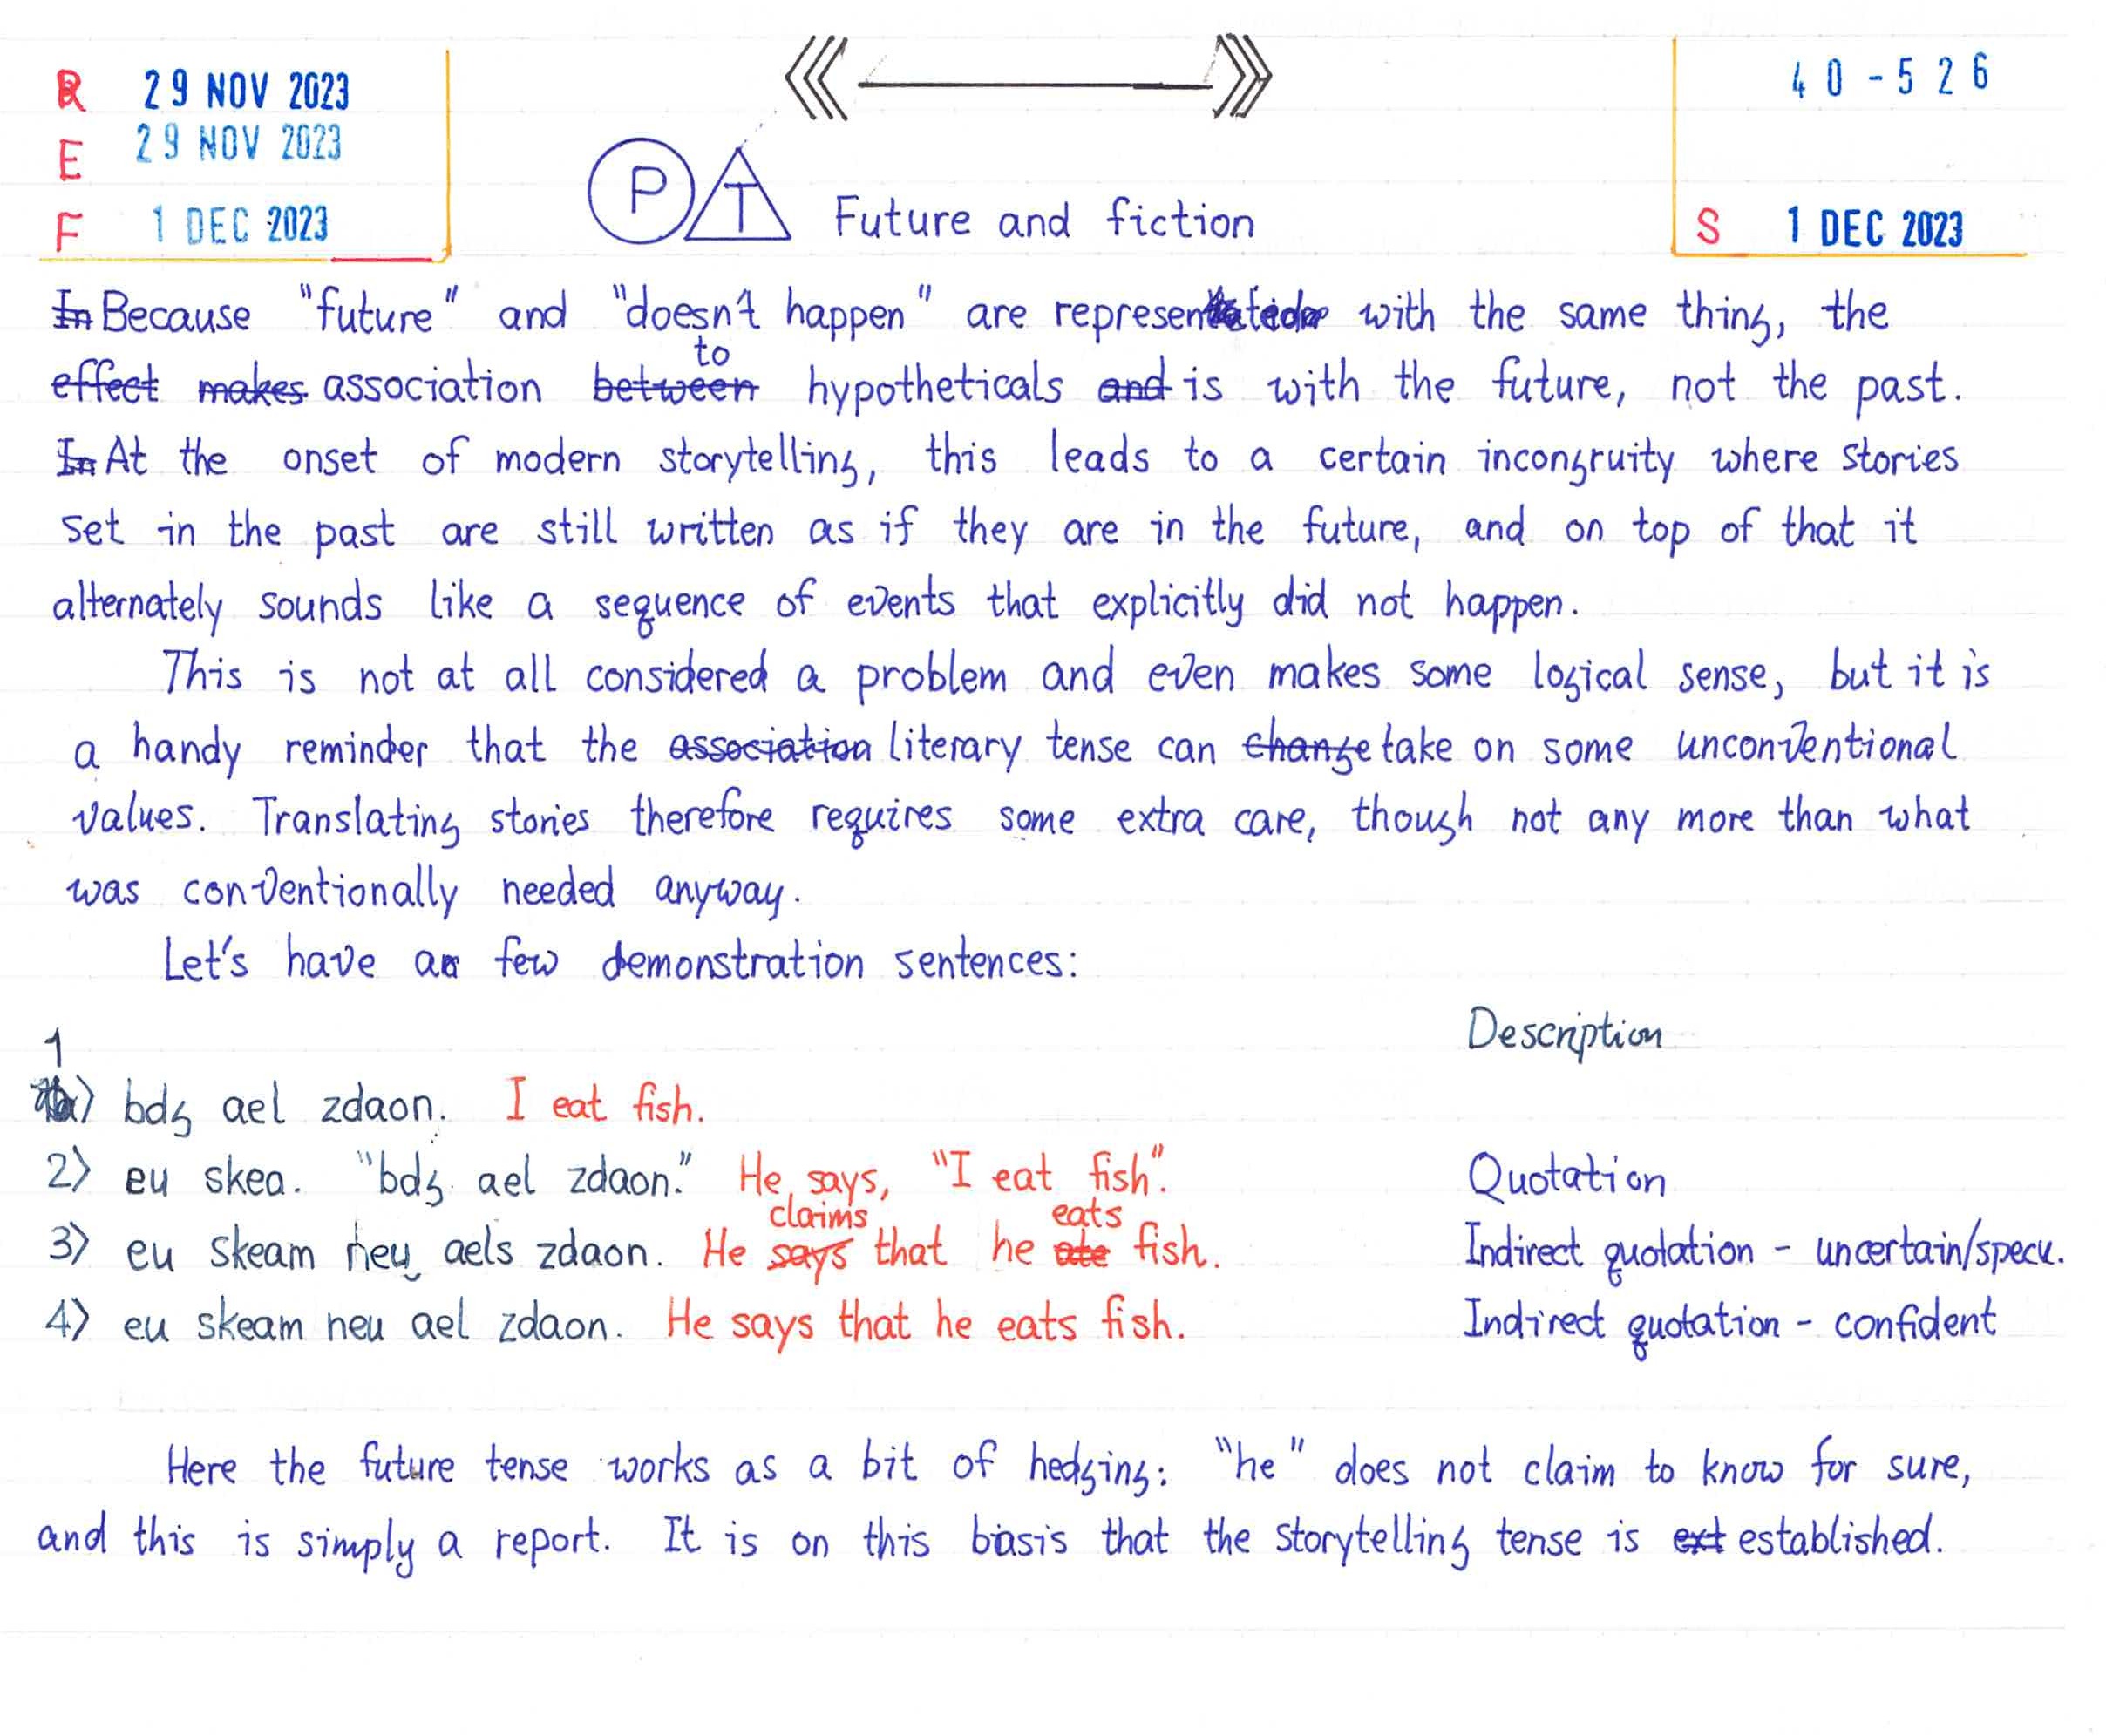 R 29 NOV 2023
E 29 NOV 2023
F 1 DEC 2023
40-526
S 1 DEC 2023
P T Future and fiction
In Because "future" and "doesn't happen" are represented with the same thing, the
effect makes association between to hypotheticals and is with the future, not the past.
In At the onset of modern storytelling, this leads to a certain incongruity where stories
set in the past are still written as if they are in the future, and on top of that it
alternately sounds like a sequence of events that explicitly did not happen.
This is not at all considered a problem and even makes some logical sense, but it is
a handy reminder that the association literary tense can change take on some unconventional
values. Translating stories therefore requires some extra care, though not any more than what
was conventionally needed anyway.
Let's have a few demonstration sentences:
Description
1) bdg ael zdaon. I eat fish.
2) eu skea. "bdg ael zdaon." He says, "I eat fish". Quotation
3) eu skeam neu aels zdaon. He says claims that he ate eats fish. Indirect quotation - uncertain/specu.
4) eu skeam neu ael zdaon. He says that he eats fish. Indirect quotation - confident
Here the future tense works as a bit of hedging: "he" does not claim to know for sure,
and this is simply a report. It is on this basis that the storytelling tense is ext established.